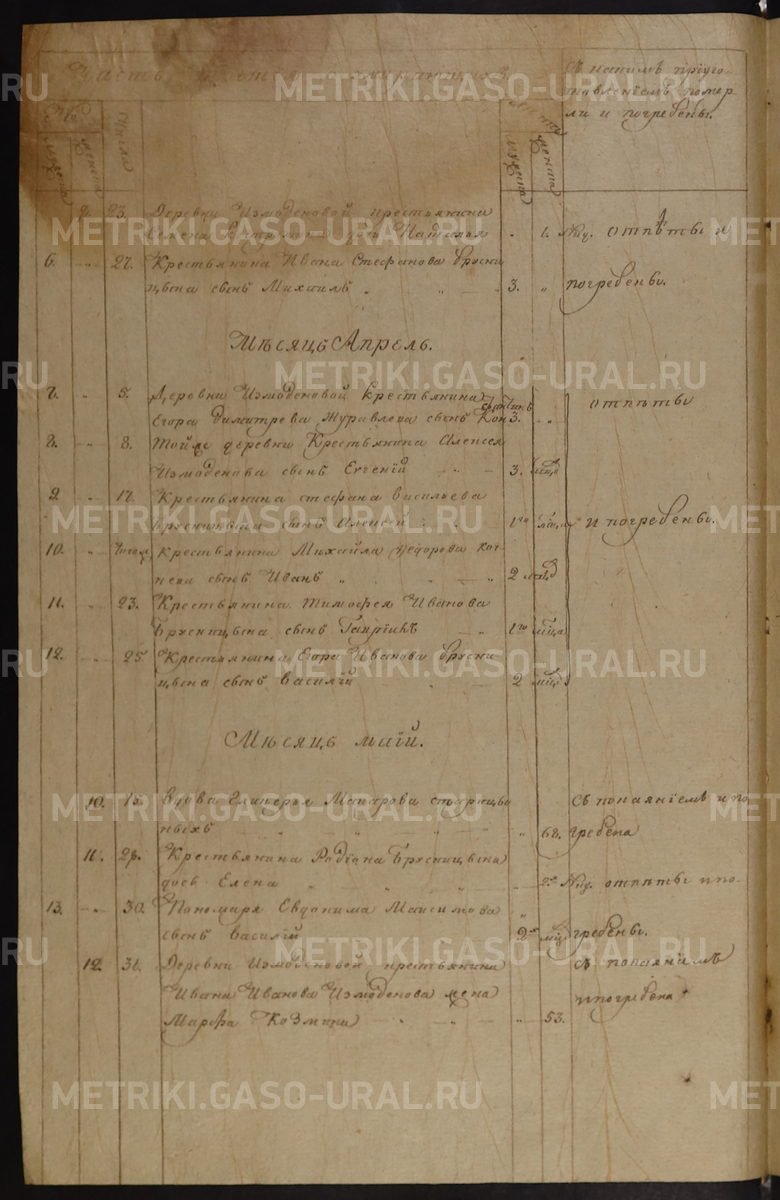 Часть третья умирающихъ
Съ какимъ пріуго-
товленіемъ помер
ли и погребены.
Число
мужеска
женска
9. 23. Деревни Измоденовой крестьянина
дочь Наталья 1. Нед. отпѣты и
6. 27. Крестьянина Ивана Стефанова Брусни
цына сынъ Михаилъ 3. погребены.
Мѣсяцъ Апрель.
7. 5. Деревни Измоденовой Крестьянина
Егора Димитрева Журавлева сынъ Констан 3. отпѣты
8. 8. Той же деревни Крестьянина Алексея
Измоденова сынъ Евгеній 3. мѣся
9. 17. Крестьянина Стефана Васильева
Брусницына сынъ Алексей 1го мѣця и погребены.
10. Крестьянина Михайла Федорова Кор
нева сынъ Иванъ 2 мѣся
11. 23. Крестьянина Тимофея Иванова
Брусницына сынъ Гавріилъ 1го мѣця
12. 25 Крестьянина Егора Иванова Брусни
цына сынъ Василій 2 мѣця
Мѣсяцъ Маій.
10. 15. Вдова Гликерья Макарова
ныхъ 68. съ покаяніемъ и по
гребена
11. 28. Крестьянина Родіона Брусницына
дочь Елена 2х Нед. отпѣты и по-
13. 30. Пономаря Евдокима Максимова
сынъ Василій 2х мѣц гребены.
12. 31. Деревни Измоденовой крестьянина
Ивана Иванова Измоденова жена
Марфа Козмина 53. съ покаяніемъ
и погребена
METRIKI.GASO-URAL.RU